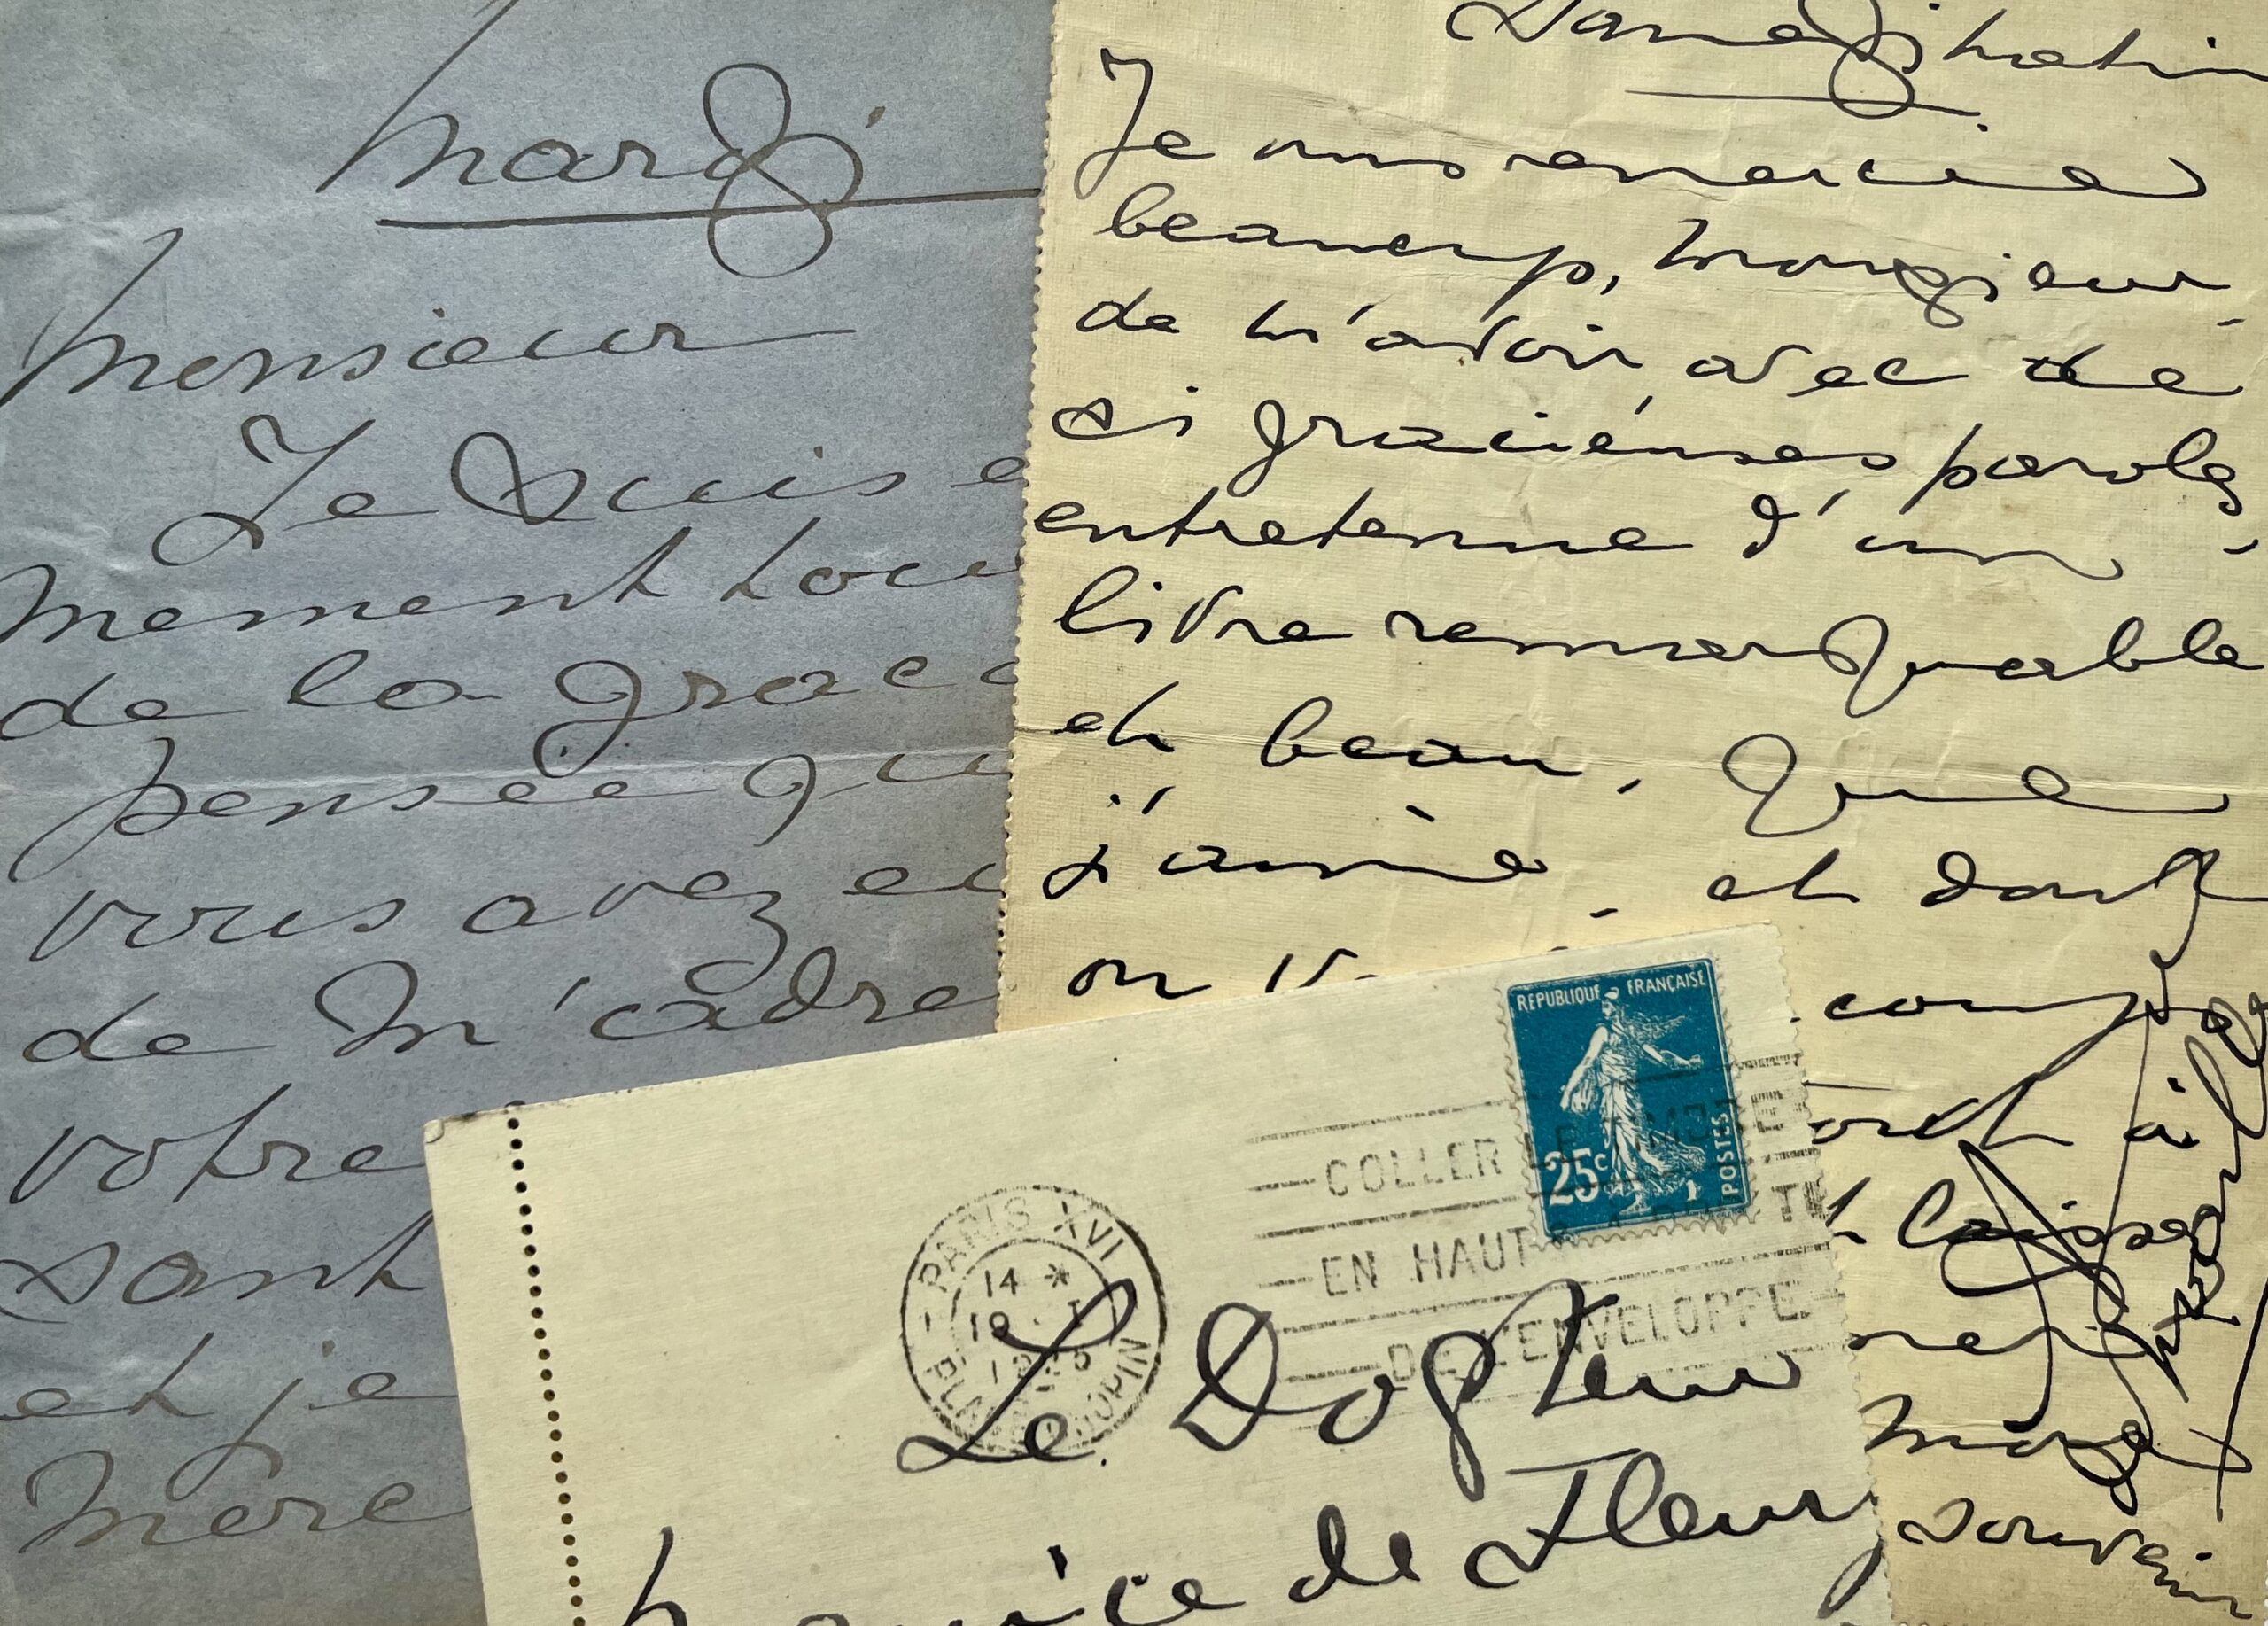 mardi
Monsieur
Je suis
mement tou
de la grace
pensée qu
vous avez eu
de m'adre
votre
sant
et je
merc
Samedi matin
Je vous remercie
beaucoup, Monsieur,
de m'avoir, avec de
si gracieuses paroles
entretenue d'un
livre remarquable
et beau, que
j'aime, et dont
on
laisser
souvenir
REPUBLIQUE FRANÇAISE
25c
POSTES
COLLER LE TIMBRE
EN HAUT A DROITE
DE L'ENVELOPPE
PARIS XVI
14 *
Le Docteur
de Fleury